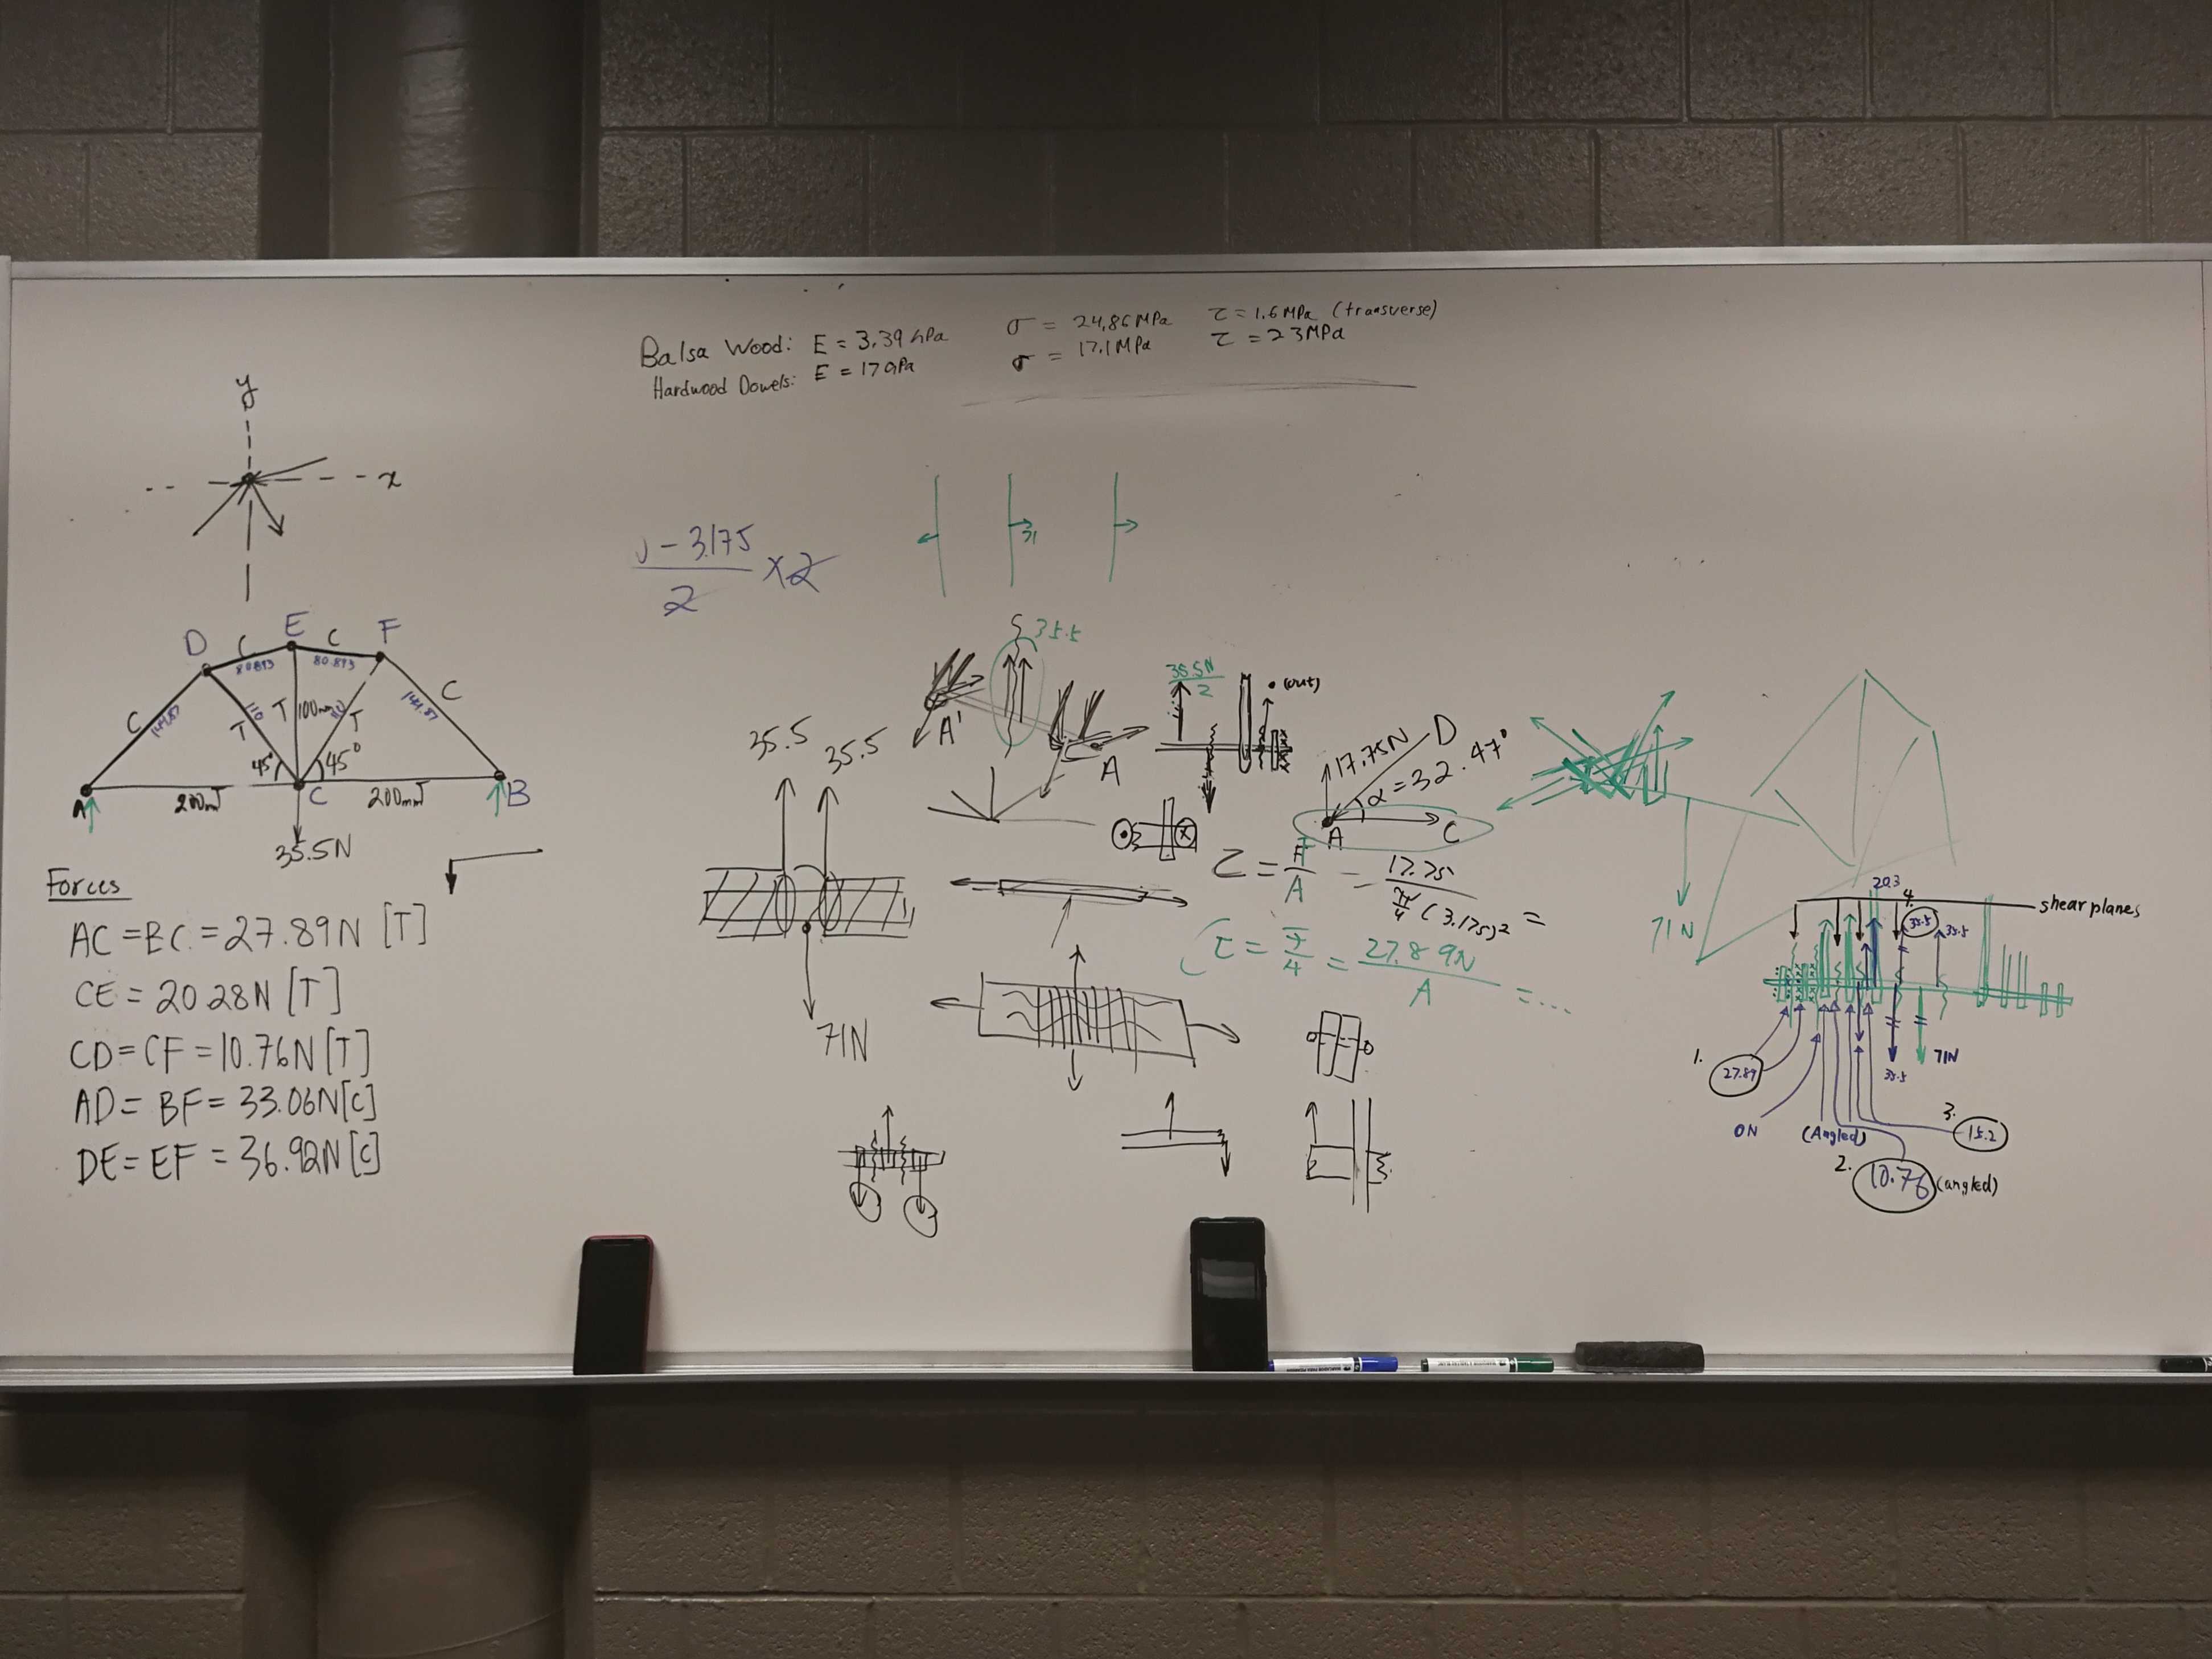 Balsa Wood: E = 3.39 GPa σ = 24.86 MPa τ = 1.6 MPa (transverse)
Hardwood Dowels: E = 17 GPa σ = 17.1 MPa τ = 23 MPa
y
x
- 3.175
2
× 2
D
C
E
C
F
80.893
80.893
C
T
110
T
100mm
T
C
45°
45°
A
200mm
C
200mm
B
35.5N
Forces
AC = BC = 27.89N [T]
CE = 20.28N [T]
CD = CF = 10.76N [T]
AD = BF = 33.06N [C]
DE = EF = 36.92N [C]
35.5
35.5
71N
35.5
A'
A
35.5N
2
(out)
17.75N
D
α = 32.47°
A
C
τ = F/A = 17.75 / π/4 (3.175)² =
τ = F/4 = 27.89N / A = ...
71N
20.3
4.
shear planes
35.5
35.5
1.
27.89
35.5
71N
0N
(Angled)
3.
15.2
2.
10.76 (angled)